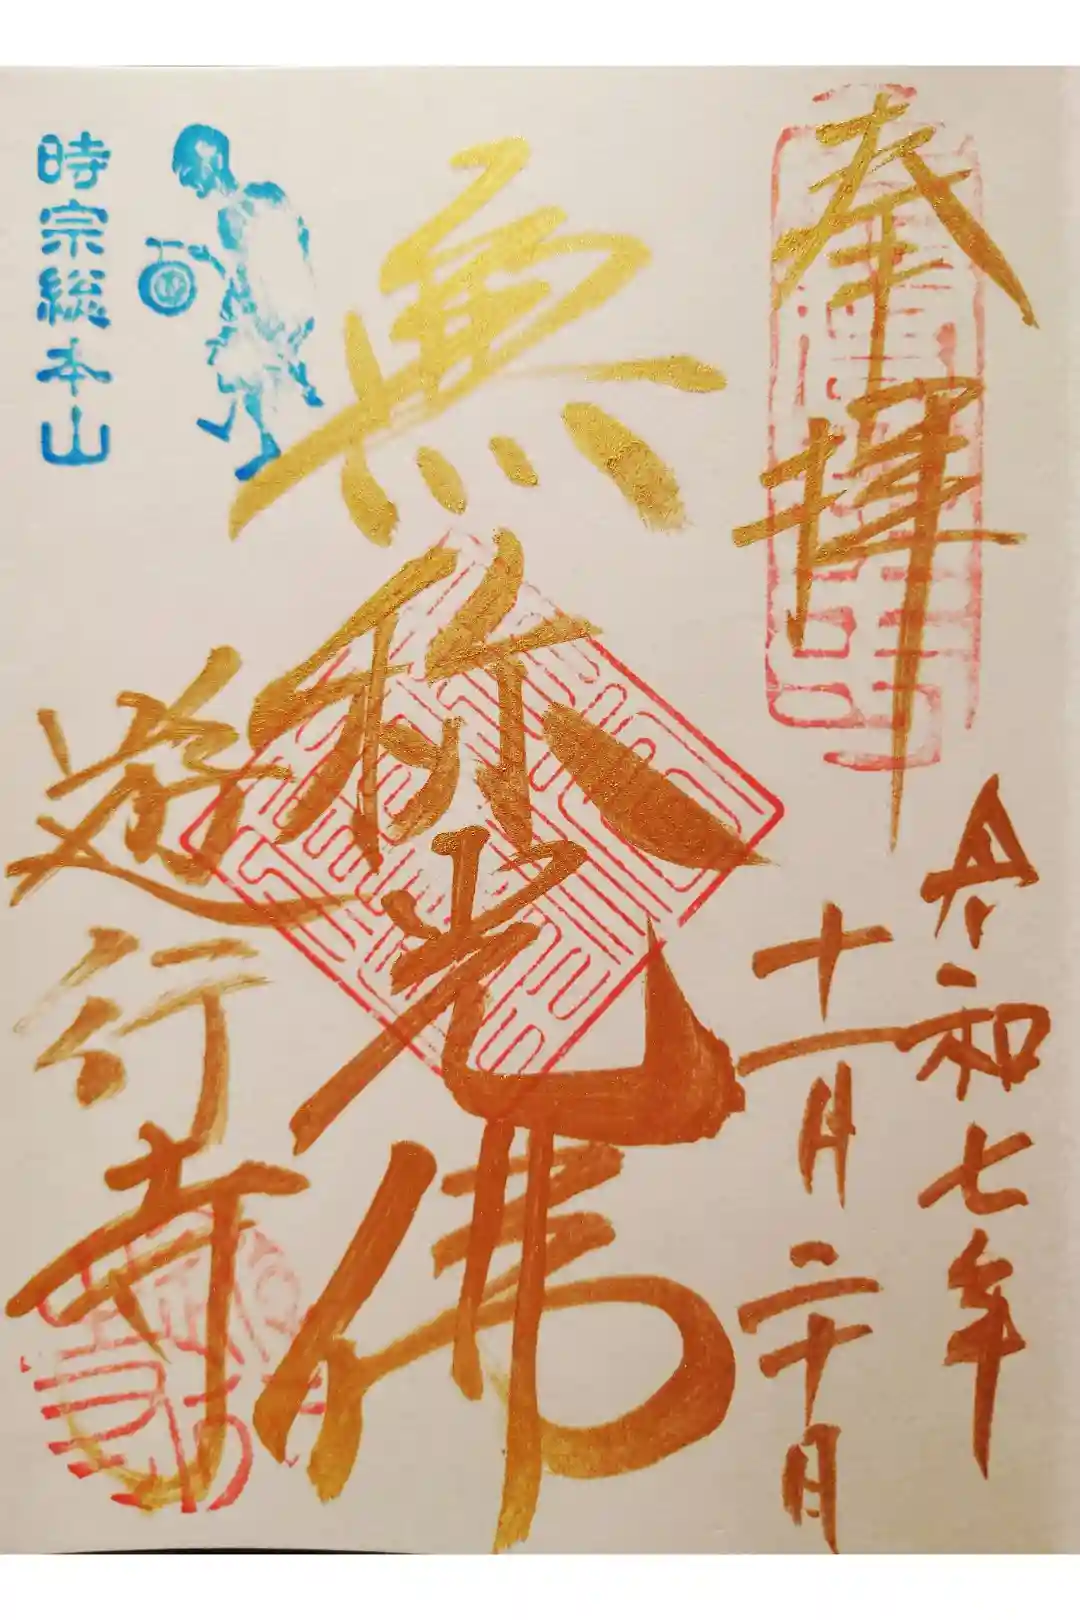 奉拝
令和七年
十一月二十日
無称光佛
時宗総本山
遊行寺